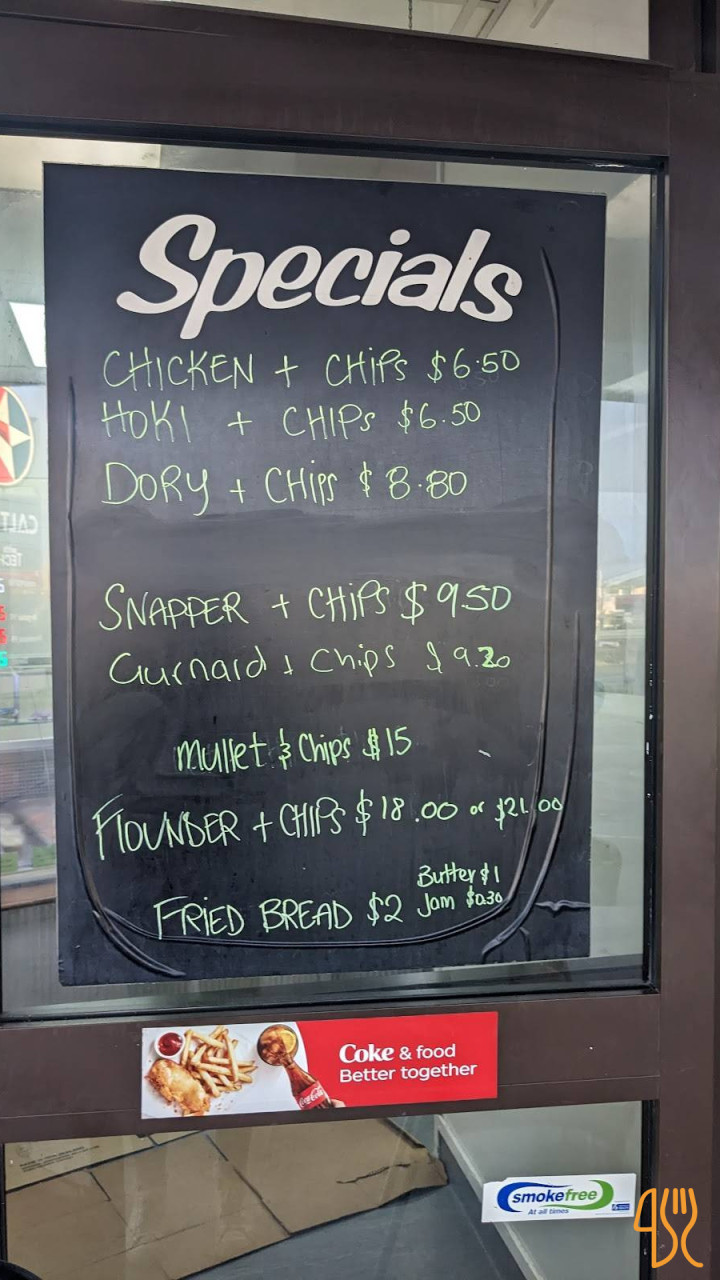 Specials
CHICKEN + CHIPS $6.50
HOKI + CHIPS $6.50
DORY + CHIPS $8.80
SNAPPER + CHIPS $9.50
Gurnard + Chips $9.20
Mullet & Chips $15
FLOUNDER + CHIPS $18.00 or $21.00
Butter $1
FRIED BREAD $2 Jam $0.30
Coke & food
Better together
Coca-Cola
smokefree
At all times